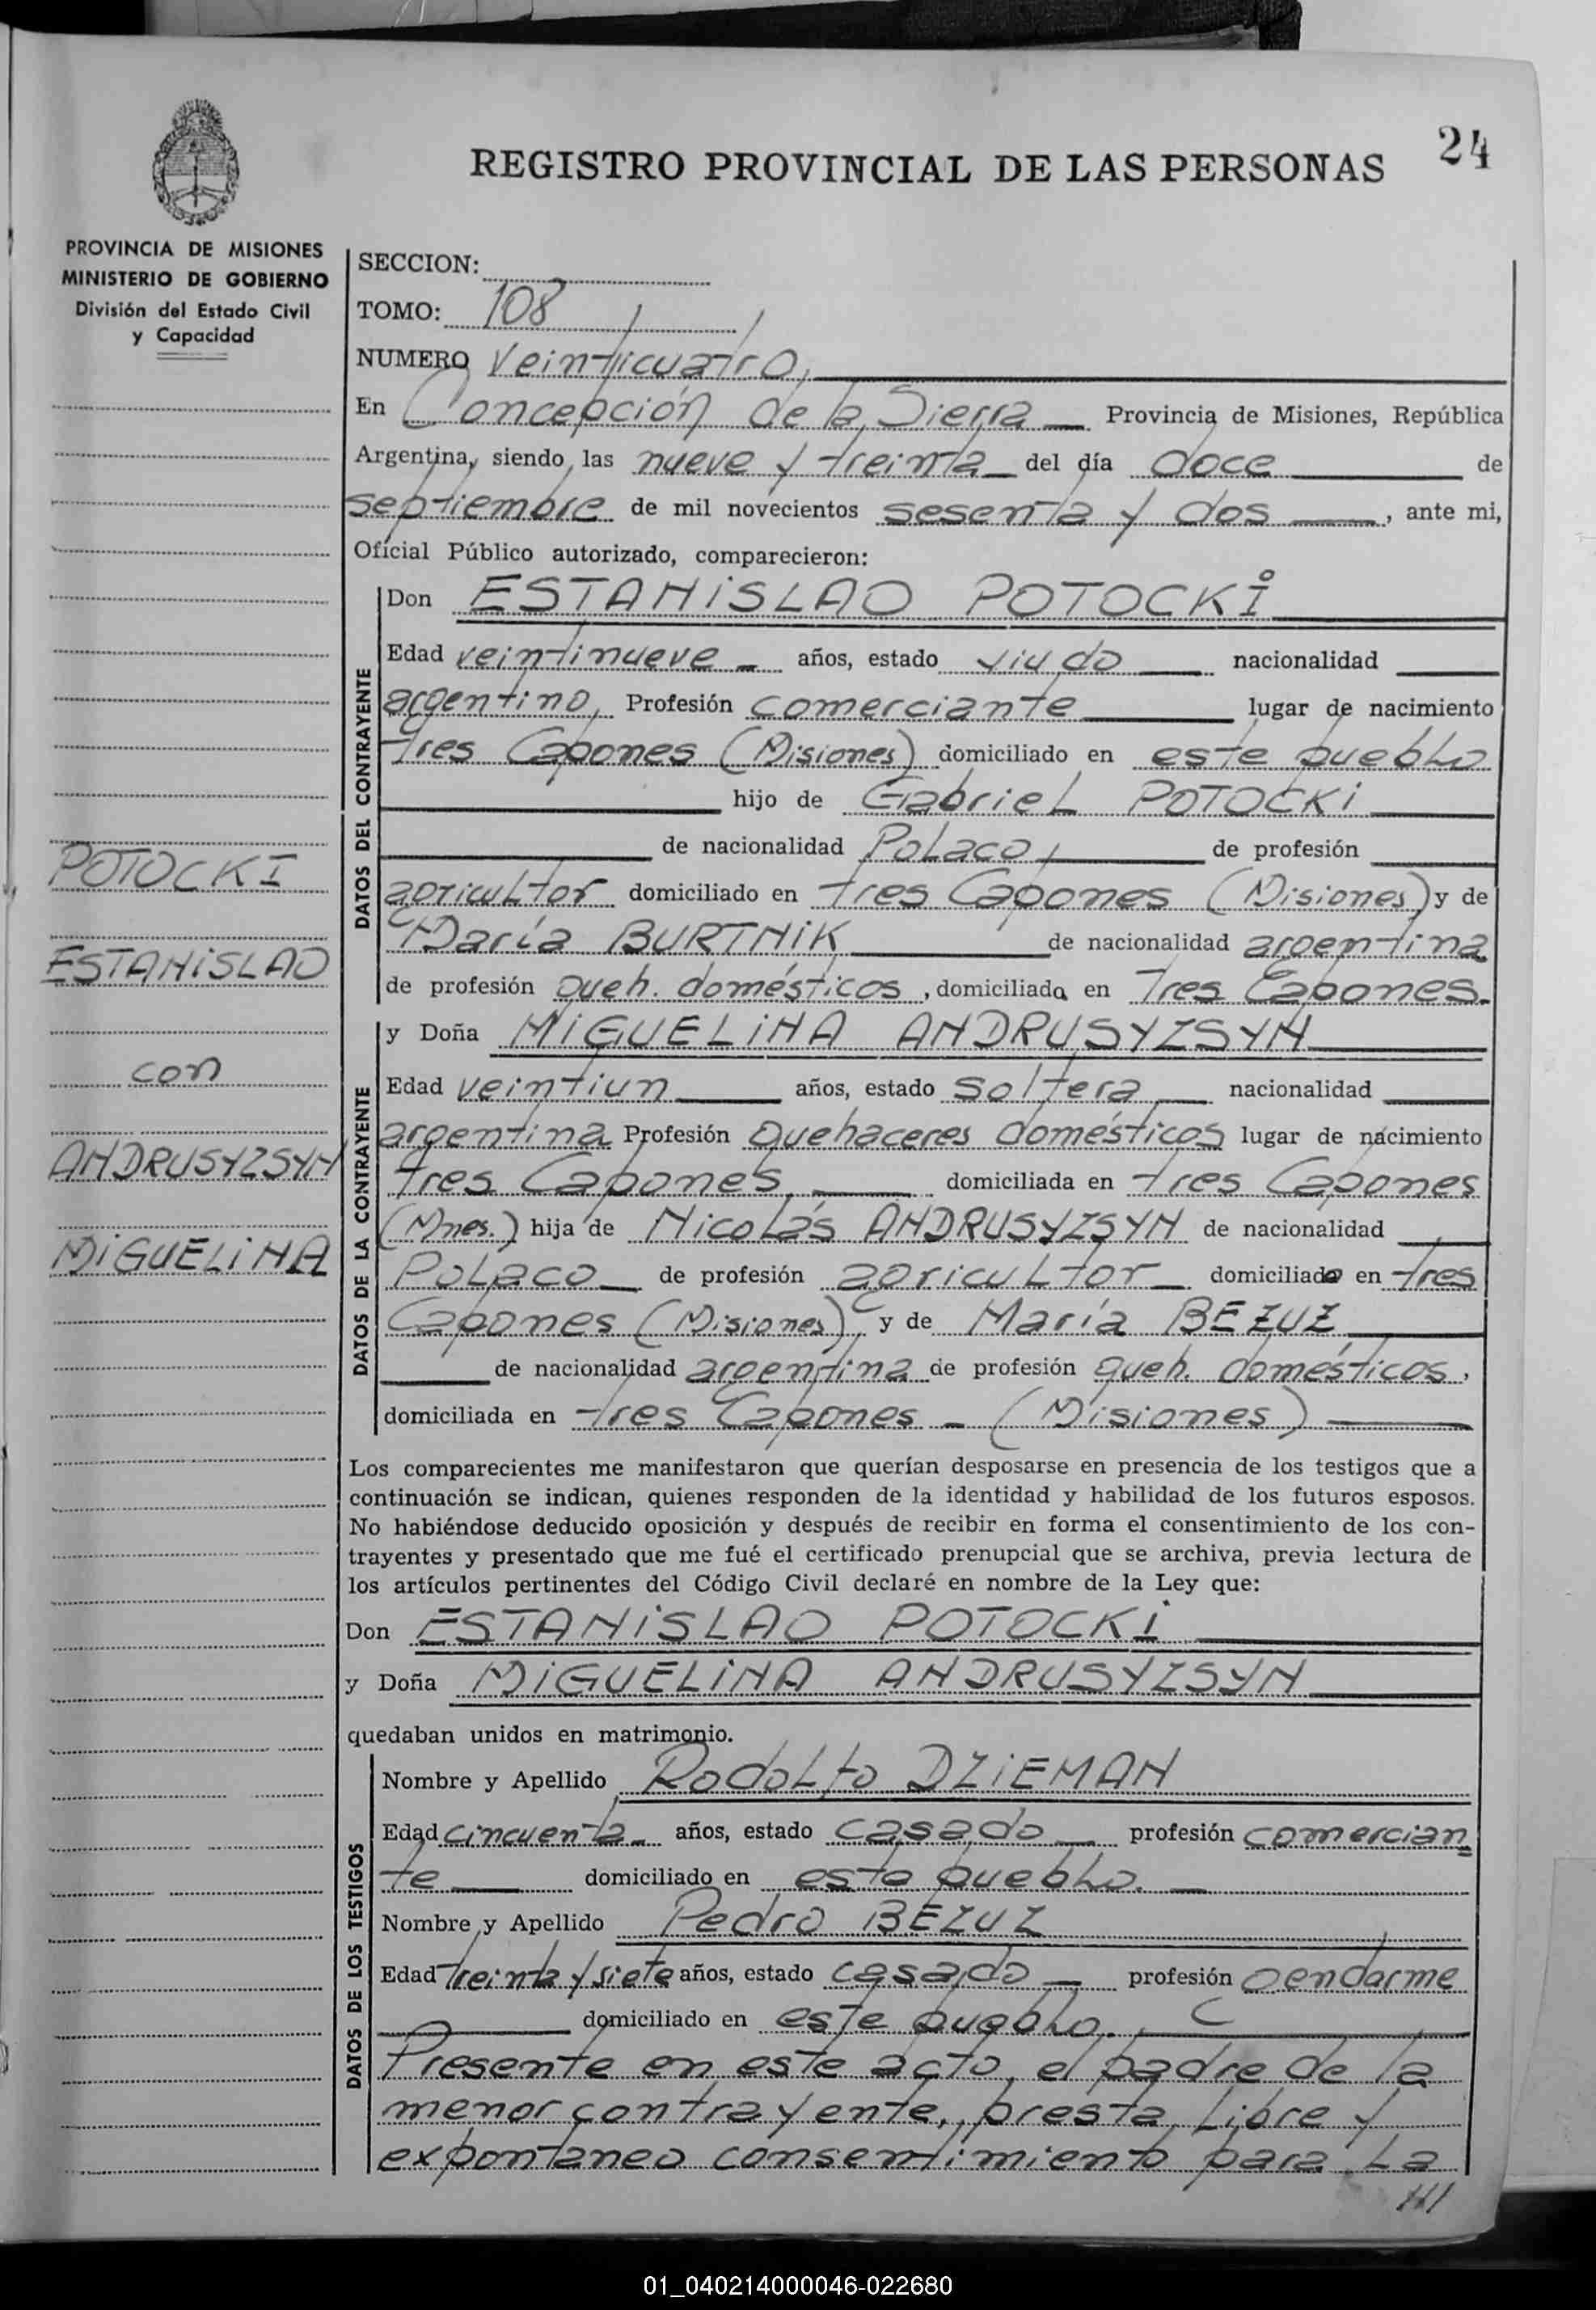 24
REGISTRO PROVINCIAL DE LAS PERSONAS
PROVINCIA DE MISIONES
MINISTERIO DE GOBIERNO
División del Estado Civil
y Capacidad
POTOCKI
ESTANISLAO
con
ANDRUSYZSYN
MIGUELINA
SECCION:
TOMO: 108
NUMERO Veinticuatro,
En Concepción de la Sierra Provincia de Misiones, República
Argentina, siendo las nueve y treinta del día doce de
septiembre de mil novecientos sesenta y dos, ante mi,
Oficial Público autorizado, comparecieron:
DATOS DEL CONTRAYENTE
Don ESTANISLAO POTOCKI
Edad veintinueve años, estado viudo nacionalidad
argentino, Profesión comerciante lugar de nacimiento
tres Capones (Misiones) domiciliado en este pueblo
hijo de Gabriel POTOCKI
de nacionalidad Polaco, de profesión
agricultor domiciliado en tres Capones (Misiones) y de
María BURTNIK de nacionalidad argentina
de profesión queh. domésticos, domiciliada en Tres Capones.
DATOS DE LA CONTRAYENTE
y Doña MIGUELINA ANDRUSYZSYN
Edad veintiun años, estado soltera nacionalidad
argentina Profesión Quehaceres domésticos lugar de nacimiento
tres Capones, domiciliada en tres Capones
(Mnes.) hija de Nicolás ANDRUSYZSYN de nacionalidad
Polaco de profesión agricultor domiciliado en tres
Capones (Misiones), y de María BEZUZ
de nacionalidad argentina de profesión queh. domésticos,
domiciliada en tres Capones - (Misiones)
Los comparecientes me manifestaron que querían desposarse en presencia de los testigos que a
continuación se indican, quienes responden de la identidad y habilidad de los futuros esposos.
No habiéndose deducido oposición y después de recibir en forma el consentimiento de los con-
trayentes y presentado que me fué el certificado prenupcial que se archiva, previa lectura de
los artículos pertinentes del Código Civil declaré en nombre de la Ley que:
Don ESTANISLAO POTOCKI
y Doña MIGUELINA ANDRUSYZSYN
quedaban unidos en matrimonio.
DATOS DE LOS TESTIGOS
Nombre y Apellido Rodolfo DZIEMAN
Edad cincuenta años, estado casado profesión comercian
te domiciliado en este pueblo.
Nombre y Apellido Pedro BEZUZ
Edad treinta y siete años, estado casado profesión gendarme
domiciliado en este pueblo.
Presente en este acto, el padre de la
menor contrayente, presta libre y
expontaneo consentimiento para la
///
01_040214000046-022680